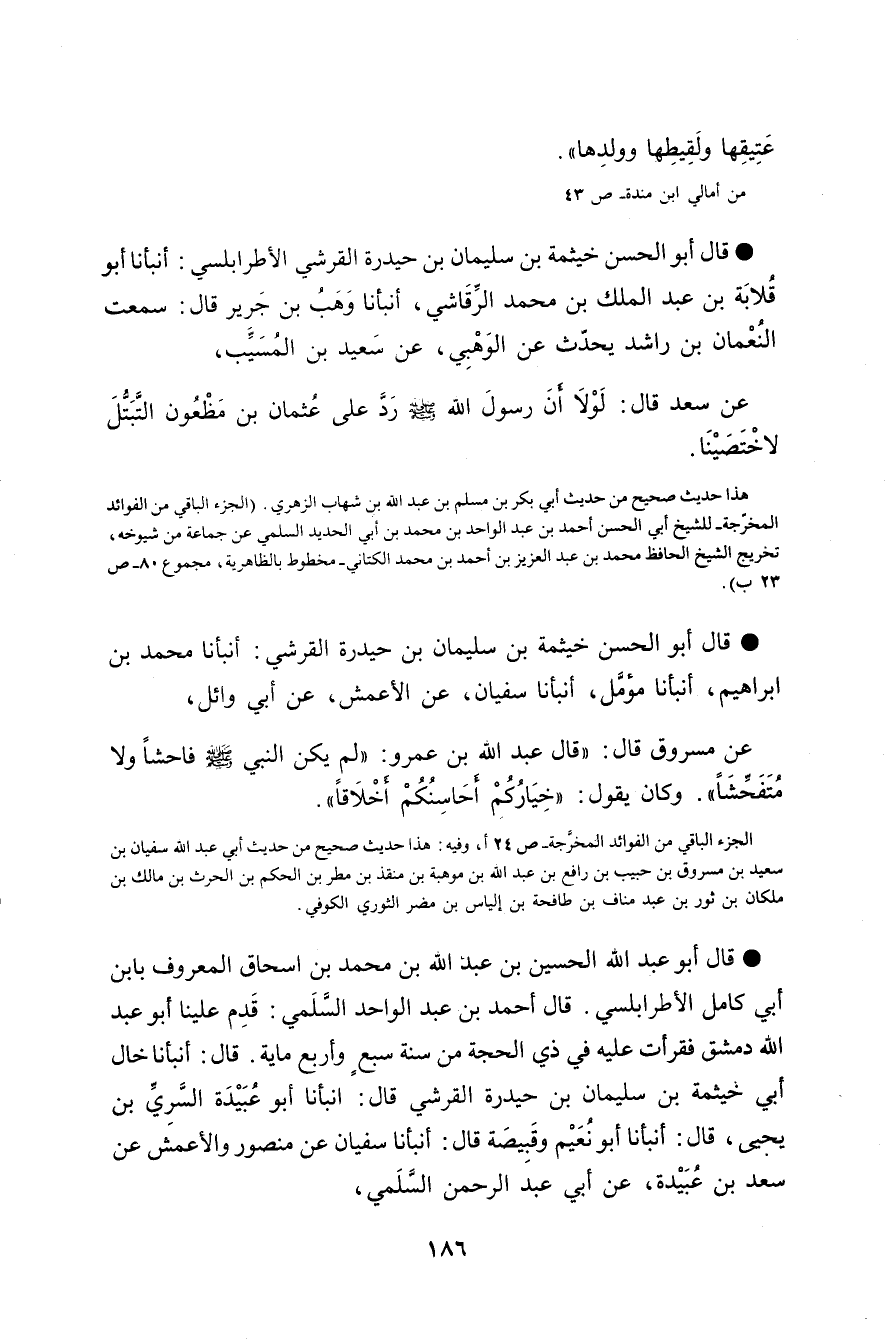 عَتِيقِها ولَقِيطِها وولدِها» .
من أمالي ابن مندة ـ ص ٤٣
● قال أبو الحسن خيثمة بن سليمان بن حيدرة القرشي الأطرابلسي : أنبأنا أبو
قُلابَة بن عبد الملك بن محمد الرَّقَاشي ، أنبأنا وَهَبُ بن جَرير قال : سمعت
النُّعْمان بن راشد يحدّث عن الوَهْبي ، عن سَعيد بن المُسَيَّب ،
عن سعد قال : لَوْلَا أَنَ رسولَ الله ﷺ رَدَّ على عُثمان بن مَظْعُون التَّبَتُّلَ
لاخْتَصَيْنَا .
هذا حديث صحيح من حديث أبي بكر بن مسلم بن عبد الله بن شهاب الزهري . (الجزء الباقي من الفوائد
المخرّجة ـ للشيخ أبي الحسن أحمد بن عبد الواحد بن محمد بن أبي الحديد السلمي عن جماعة من شيوخه ،
تخريج الشيخ الحافظ محمد بن عبد العزيز بن أحمد بن محمد الكتاني ـ مخطوط بالظاهرية ، مجموع ٨٠ ـ ص
٢٣ ب) .
● قال أبو الحسن خيثمة بن سليمان بن حيدرة القرشي : أنبأنا محمد بن
ابراهيم ، أنبأنا مؤمَّل ، أنبأنا سفيان ، عن الأعمش ، عن أبي وائل ،
عن مسروق قال : «قال عبد الله بن عمرو : «لم يكن النبي ﷺ فاحشاً ولا
مُتَفَحِّشَاً» . وكان يقول : «خِيَارُكُمْ أَحَاسِنُكُمْ أَخْلَاقاً» .
الجزء الباقي من الفوائد المخرَّجة ـ ص ٢٤ أ ، وفيه : هذا حديث صحيح من حديث أبي عبد الله سفيان بن
سعيد بن مسروق بن حبيب بن رافع بن عبد الله بن موهبة بن منقذ بن مطر بن الحكم بن الحرث بن مالك بن
ملكان بن ثور بن عبد مناف بن طافحة بن إلياس بن مضر الثوري الكوفي .
● قال أبو عبد الله الحسين بن عبد الله بن محمد بن اسحاق المعروف بابن
أبي كامل الأطرابلسي . قال أحمد بن عبد الواحد السَّلَمي : قَدِم علينا أبو عبد
الله دمشق فقرأت عليه في ذي الحجة من سنة سبعٍ وأربع ماية . قال : أنبأنا خال
أبي خيثمة بن سليمان بن حيدرة القرشي قال : انبأنا أبو عُبَيْدَة السَّرِيِّ بن
يحيى ، قال : أنبأنا أبو نُعَيْم وقَبِيصَة قال : أنبأنا سفيان عن منصور والأعمش عن
سعد بن عُبَيْدة ، عن أبي عبد الرحمن السَّلَمي ،
١٨٦